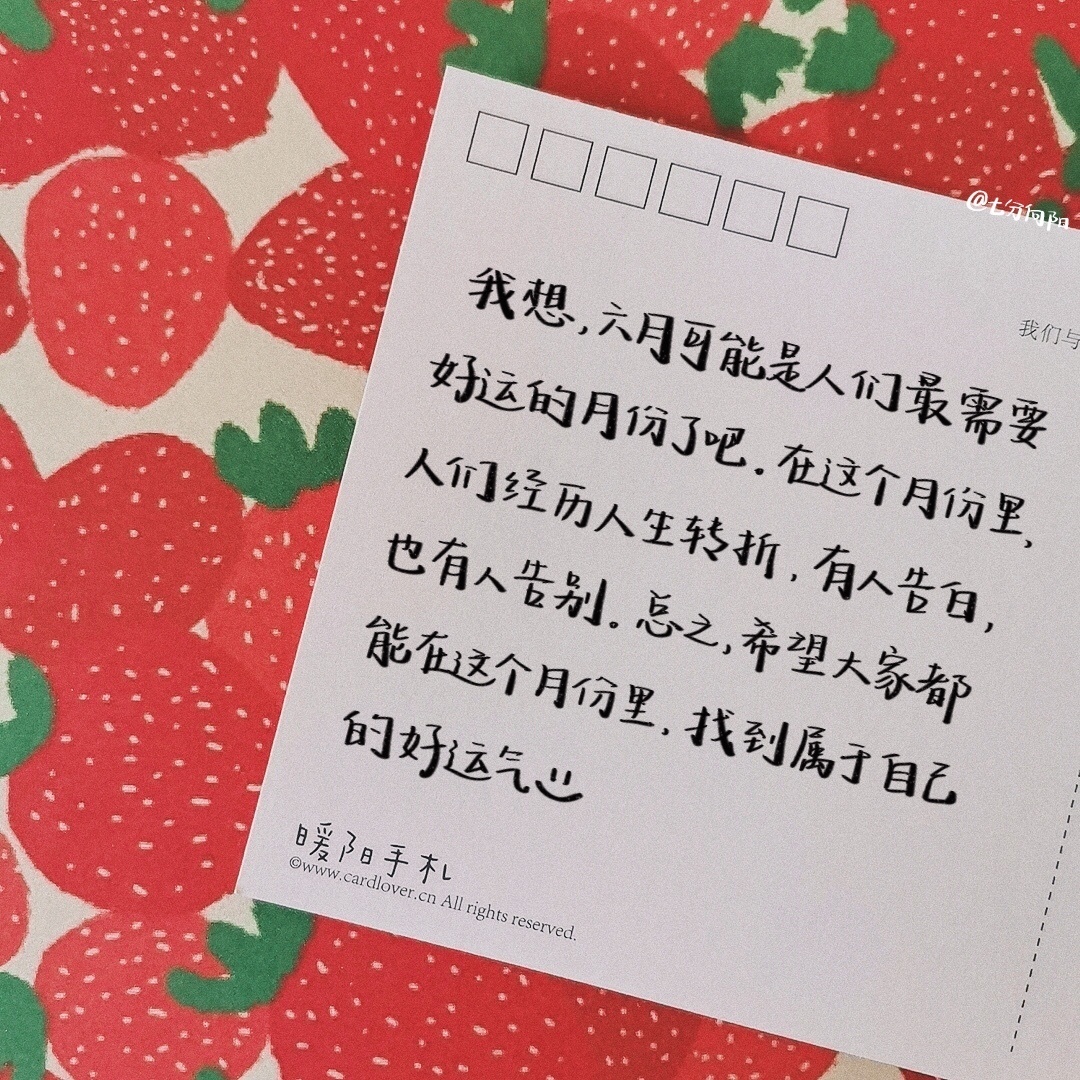 @七分向阳
我们与
我想,六月可能是人们最需要
好运的月份了吧。在这个月份里,
人们经历人生转折,有人告白,
也有人告别。总之,希望大家都
能在这个月份里,找到属于自己
的好运气
暖阳手札
©www.cardlover.cn All rights reserved.